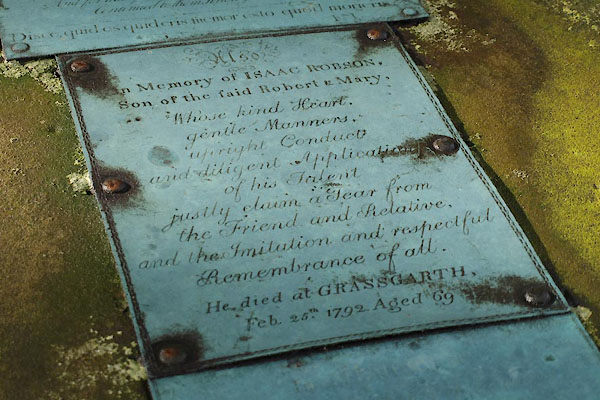 Disce quid es quid eris memor esto quod
Also
In Memory of ISAAC ROBSON,
Son of the said Robert & Mary,
Whose kind Heart,
gentle Manners,
upright Conduct
and diligent Application
of his Talent
justly claim a Tear from
the Friend and Relative,
and the Imitation and respectful
Remembrance of all.
He died at GRASSGARTH,
Feb. 25th 1792 Aged 69